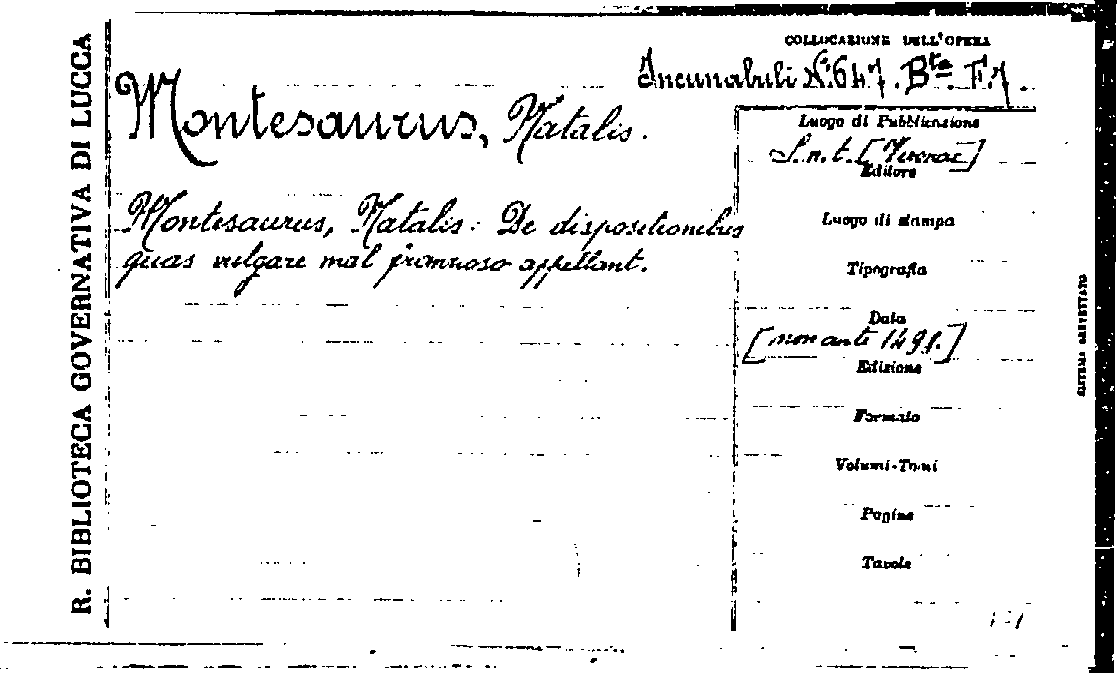 R. BIBLIOTECA GOVERNATIVA DI LUCCA
COLLOCAZIONE DELL'OPERA
Incunabuli N.º 647. Bta. F. 7.
Montesaurus, Natalis.
Montesaurus, Natalis. De dispositionibus
quas vulgare mal franzoso appellant.
Luogo di Pubblicazione
S. n. t. [Veronae]
Editore
Luogo di stampa
Tipografia
Data
[non ante 1498.]
Edizione
Formato
Volumi-Tomi
Pagine
Tavole